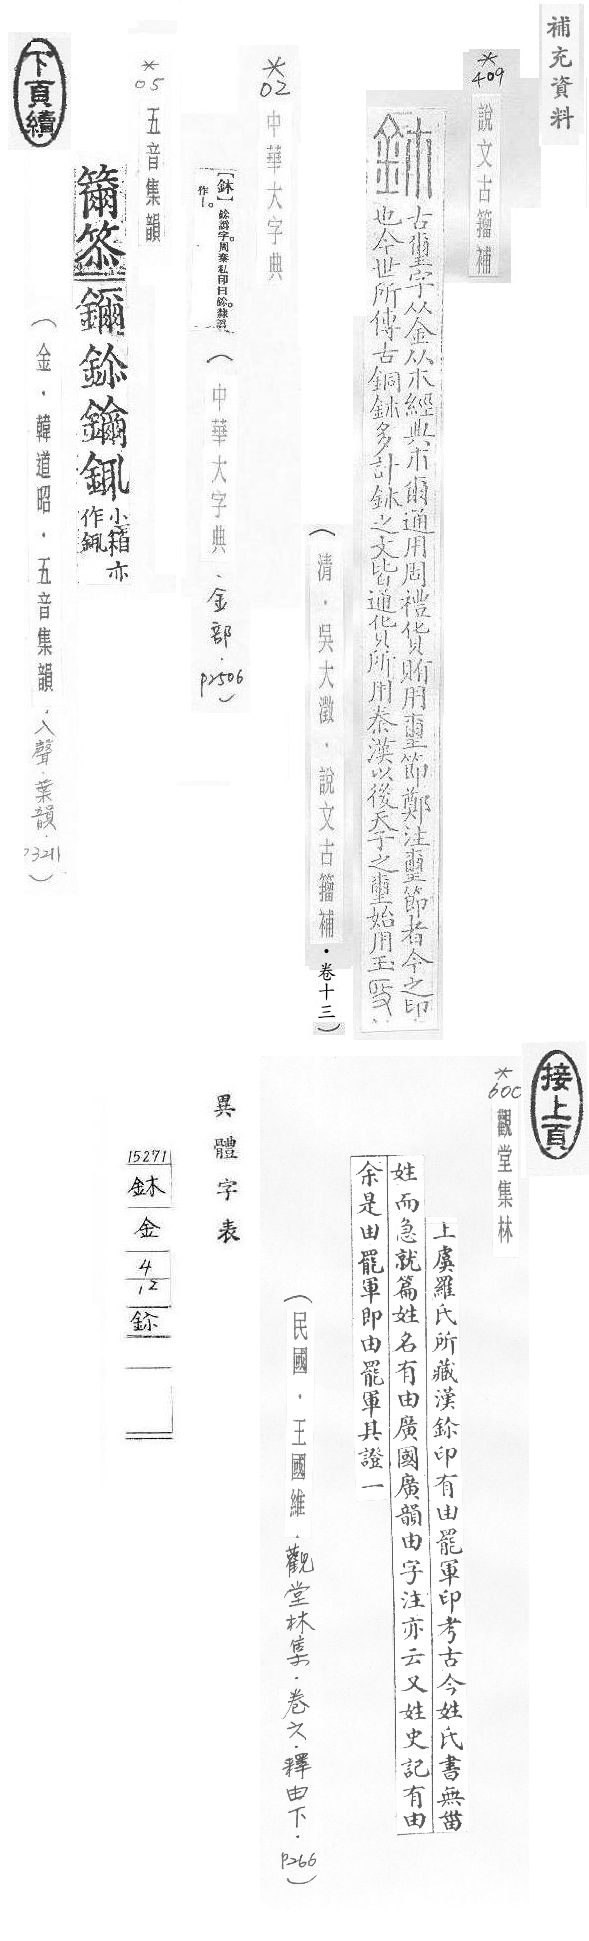 補充資料
*409
說文古籀補
鉥
古璽字从金从朩經典朩爾通用周禮貨賄用璽節鄭注璽節者今之印
也今世所傳古銅鉥多計鉥之文皆通貨所用秦漢以後天子之璽始用玉
(清．吳大澂．說文古籀補．卷十三)
*02
中華大字典
【鉥】鉨譌字。周秦私印曰鉨。隸譌
作｜。
(中華大字典．金部．p2506)
*05
五音集韻
籋䇣鑈鉨鑈銸
小籀亦
作銸
(金．韓道昭．五音集韻．入聲．葉韻．p3211)
下頁續
接上頁
*600
觀堂集林
上虞羅氏所藏漢鉨印有由罷軍印考古今姓氏書無苗
姓而急就篇姓名有由廣國廣韻由字注亦云又姓史記有由
余是由罷軍即由罷軍其證一
(民國．王國維．觀堂林集．卷六．釋由下．p266)
異體字表
15271
鉥
金
4
12
鉨